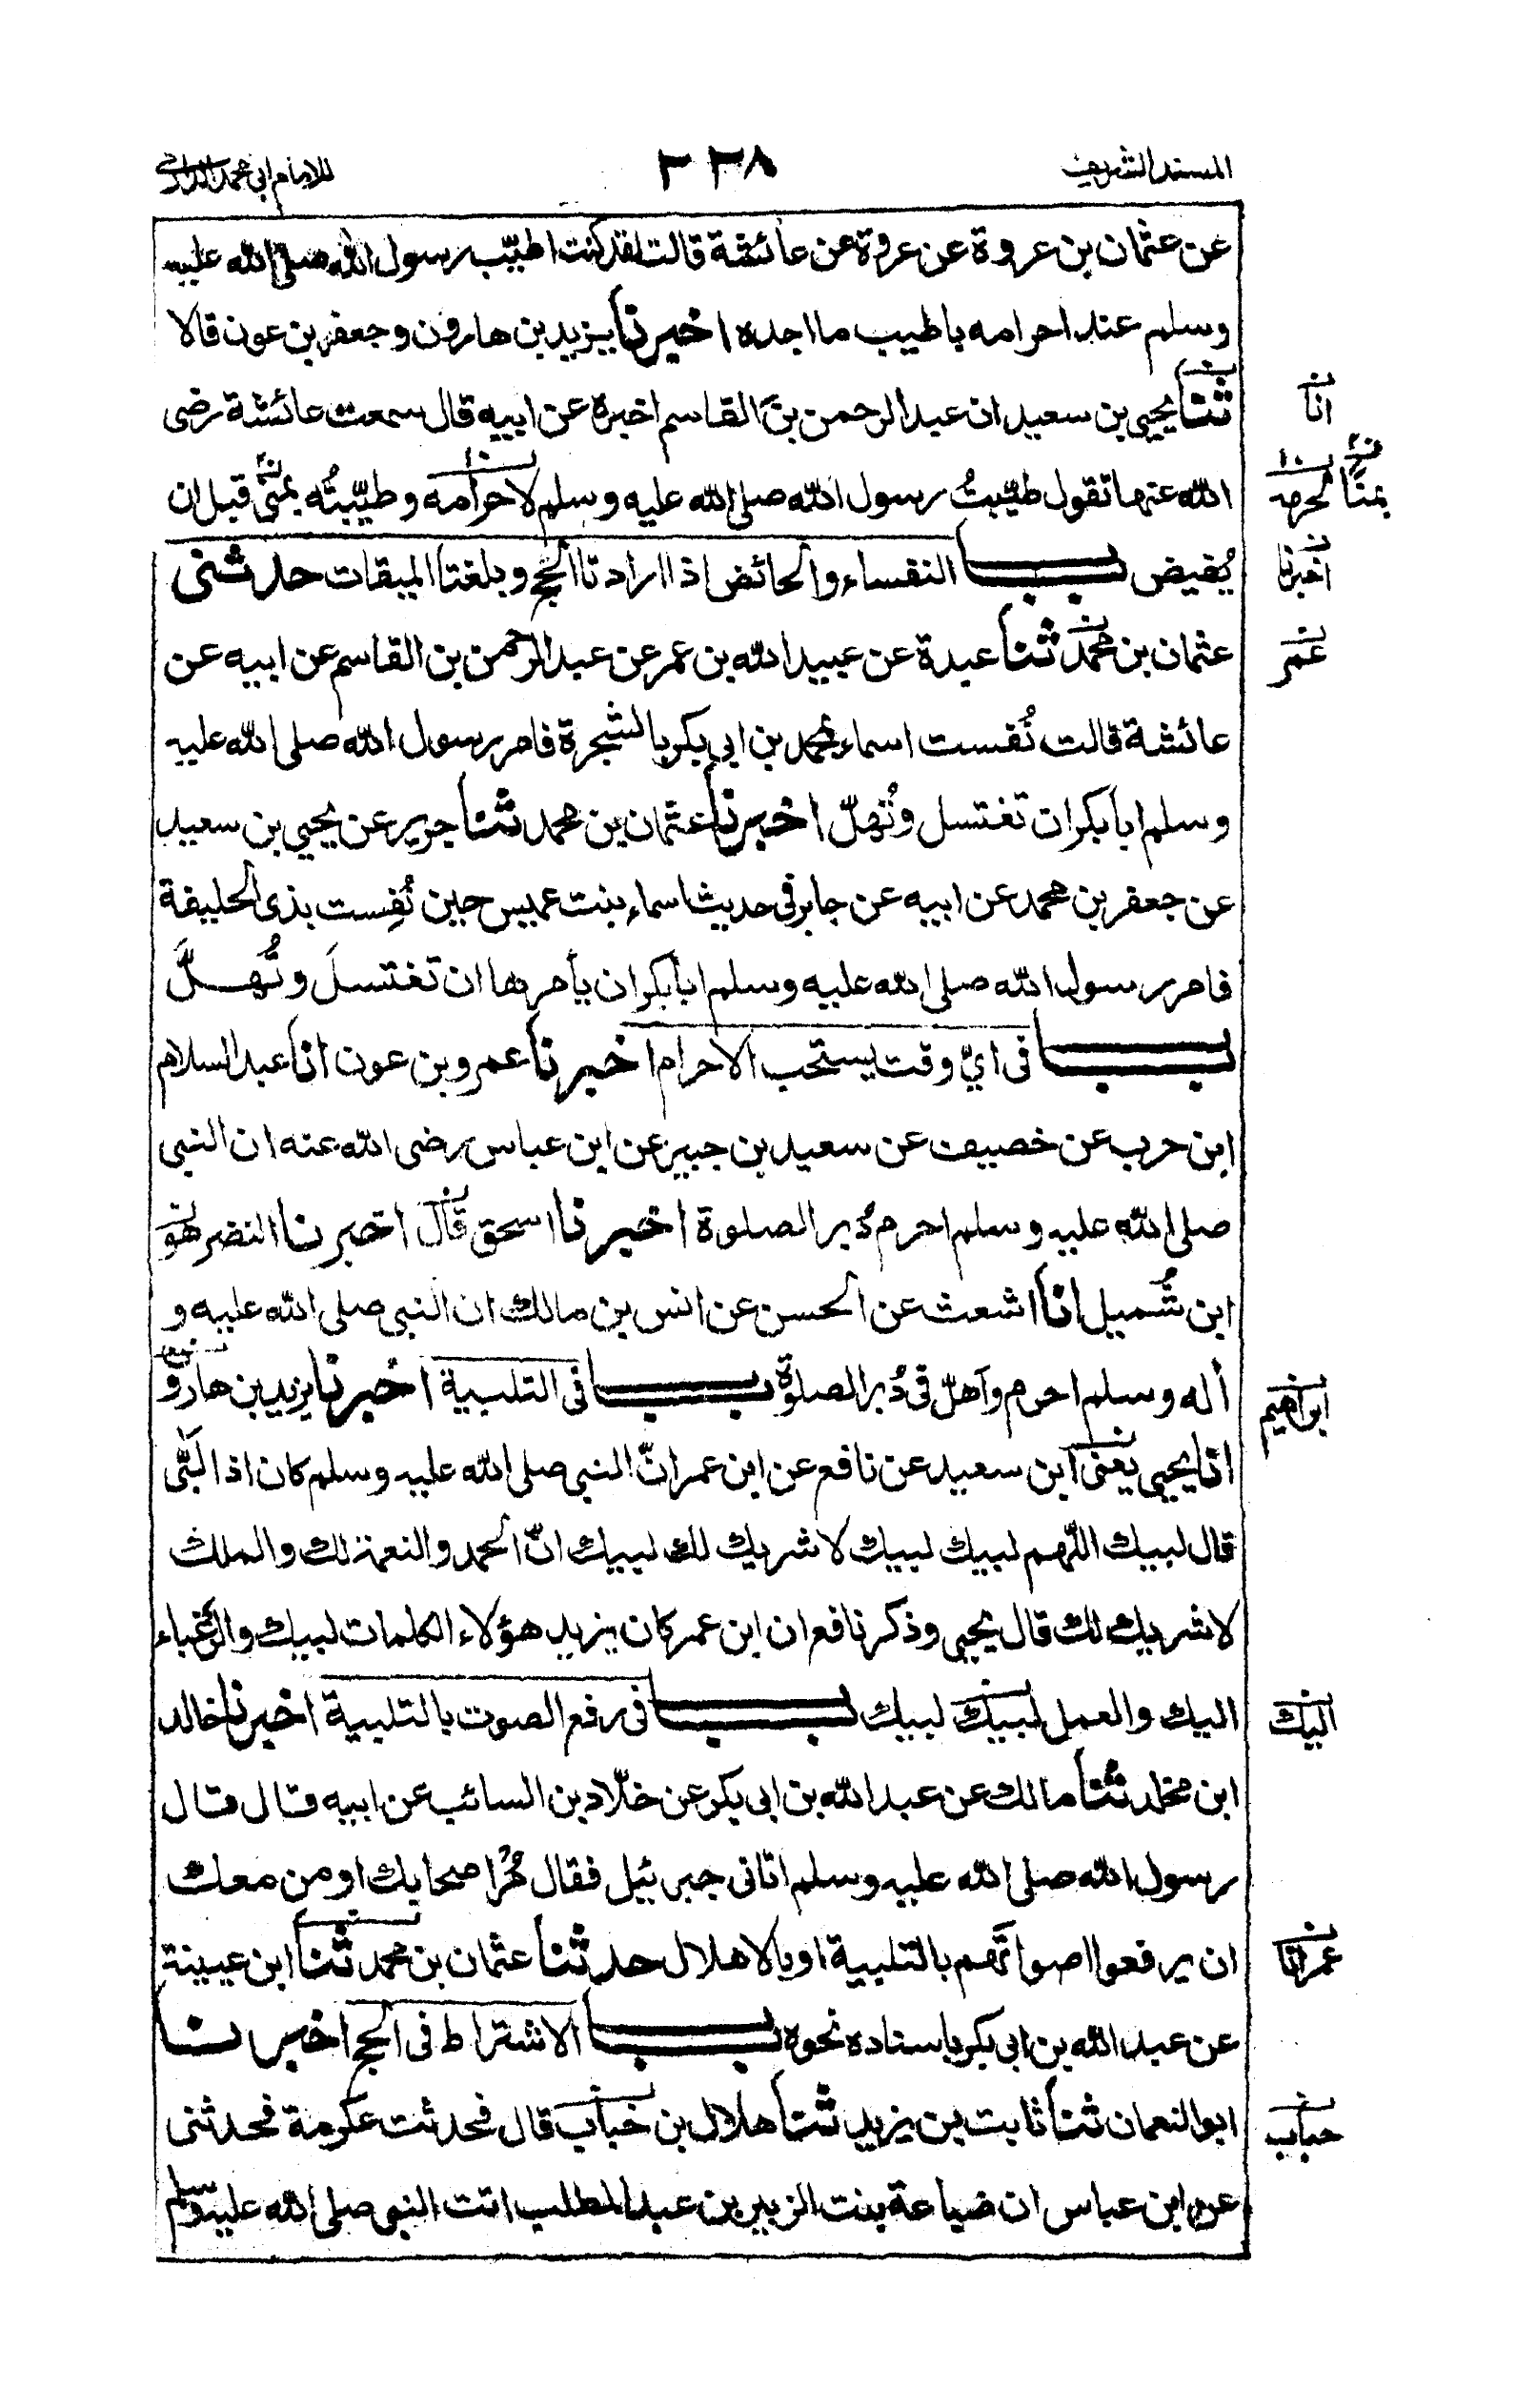 المسند الشريف
٢٣٨
للامام ابي محمد الدارمي
عن عثمان بن عروة عن عروة عن عائشة قالت لقد كنت اطيّب رسول الله صلى الله عليه
وسلم عند احرامه باطيب ما اجده اخبرنا يزيد بن هارون وجعفر بن عون قالا
ثنا يحيى بن سعيد ان عبد الرحمن بن القاسم اخبره عن ابيه قال سمعت عائشة رضى
الله عنها تقول طيّبتُ رسول الله صلى الله عليه وسلم لاحرامه وطيّبتُه بمنى قبل ان
يُفيض باب النفساء والحائض اذا ارادتا الحج وبلغتا الميقات حدثنى
عثمان بن محمد ثنا عبدة عن عبيد الله بن عمر عن عبد الرحمن بن القاسم عن ابيه عن
عائشة قالت نُفست اسماء بمحمد بن ابى بكر بالشجرة فامر رسول الله صلى الله عليه
وسلم ابا بكر ان تغتسل وتُهلّ اخبرنا عثمان بن محمد ثنا جرير عن يحيى بن سعيد
عن جعفر بن محمد عن ابيه عن جابر فى حديث اسماء بنت عميس حين نُفِست بذى الحليفة
فامر رسول الله صلى الله عليه وسلم ابا بكر ان يأمرها ان تغتسلَ وتُهلَّ
باب فى ايّ وقت يستحب الاحرام اخبرنا عمرو بن عون انا عبد السلام
ابن حرب عن خصيف عن سعيد بن جبير عن ابن عباس رضى الله عنه ان النبى
صلى الله عليه وسلم احرم دُبر الصلوة اخبرنا اسحق قال اخبرنا النضر هو
ابن شُميل انا اشعث عن الحسن عن انس بن مالك ان النبى صلى الله عليه و
أله وسلم احرم واهلّ فى دُبر الصلوة باب فى التلبية اخبرنا يزيد بن هارون
انا يحيى يعنى ابن سعيد عن نافع عن ابن عمر انّ النبى صلى الله عليه وسلم كان اذا لَبّى
قال لبيك اللّهم لبيك لبيك لا شريك لك لبيك انّ الحمد والنعمة لك والملك
لا شريك لك قال يحيى وذكر نافع ان ابن عمر كان يزيد هؤلاء الكلمات لبيك والرغباء
اليك والعمل لبيك لبيك باب فى رفع الصوت بالتلبية اخبرنا خالد
ابن مخلد ثنا مالك عن عبد الله بن ابى بكر عن خلّاد بن السائب عن ابيه قال قال
رسول الله صلى الله عليه وسلم اتانى جبرئيل فقال مُر اصحابك او من معك
ان يرفعوا اصواتهم بالتلبية او بالاهلال حدثنا عثمان بن محمد ثنا ابن عيينة
عن عبد الله بن ابى بكر باسناده نحوه باب الاشتراط فى الحج اخبرنا
ابو النعمان ثنا ثابت بن يزيد ثنا هلال بن خباب قال فحدثت عكرمة فحدثنى
عن ابن عباس ان ضباعة بنت الزبير بن عبد المطلب اتت النبى صلى الله عليه وسلم
انا
بمنًا لحرمه
اخبرنا
عمر
ابراهيم
اليك
عمر انا
حباب